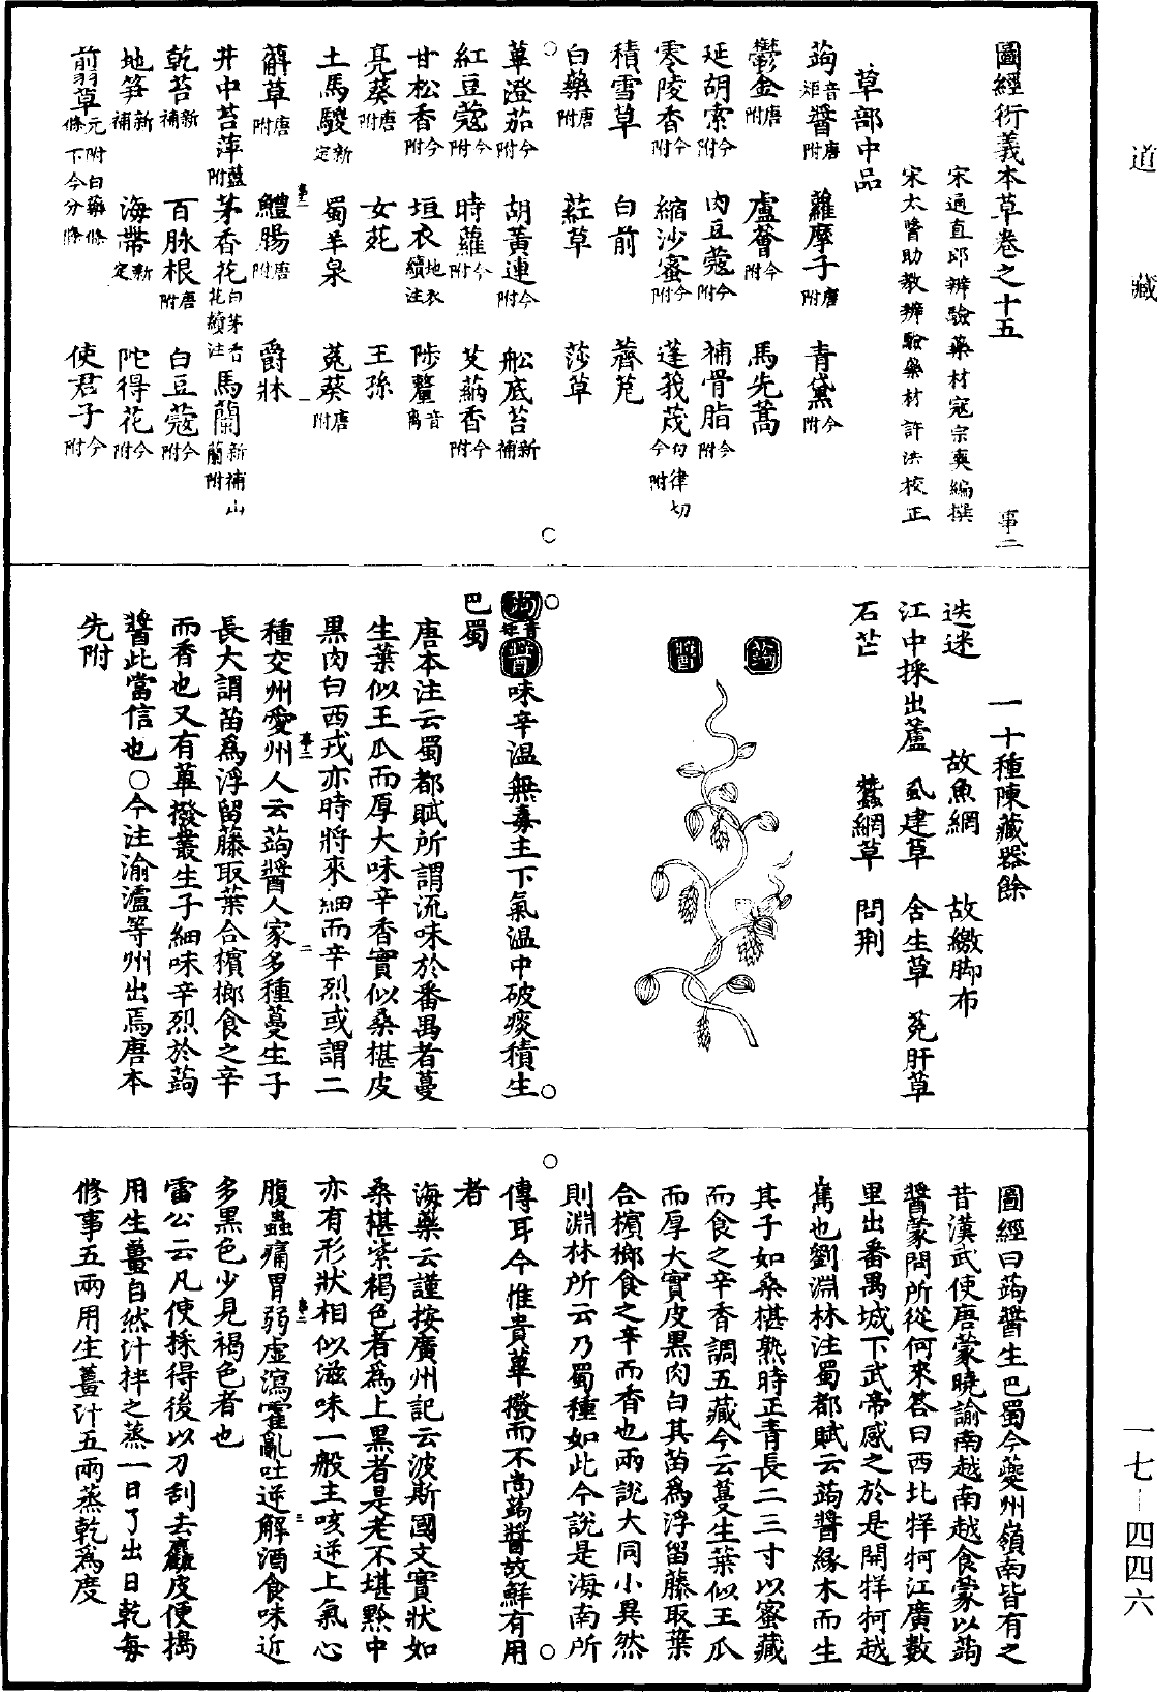 道藏
圖經衍義本草卷之十五 事二
宋通直郎辨驗藥材寇宗奭編撰
宋太醫助教辨驗藥材許洪校正
草部中品
蒟音矩醬唐附 蘿摩子唐附 青黛今附
鬱金唐附 盧薈今附 馬先蒿
延胡索今附 肉豆蔻今附 補骨脂今附
零陵香今附 縮沙蜜今附 蓬莪茂旬律切今附
積雪草 白前 薺苨
白藥唐附 葒草 莎草
蓽澄茄今附 胡黃連今附 舩底苔新補
紅豆蔻今附 時蘿今附 艾蒳香今附
甘松香今附 垣衣地衣續注 陟釐音离
亮葵唐附 女菀 王孫
土馬騣新定 蜀羊泉 菟葵唐附
蔛草唐附 鱧腸唐附 爵牀
井中苔萍藍附 茅香花白茅香花續注 馬蘭新補山蘭附
乾苔新補 百脉根唐附 白豆蔻今附
地笋新補 海帶新定 陀得花今附
前翣草元附白藥條下今分條 使君子今附
一十種陳藏器餘
迭迷 故魚網 故繳脚布
江中採出蘆 虱建草 含生草 兔肝草
石芒 蠶網草 問荆
蒟
醬
蒟音矩醬味辛溫無毒主下氣溫中破痰積生
巴蜀
唐本注云蜀都賦所謂流味於番禺者蔓
生葉似王瓜而厚大味辛香實似桑椹皮
黑肉白西戎亦時將來細而辛烈或謂二
種交州愛州人云蒟醬人家多種蔓生子
長大謂苗爲浮留藤取葉合檳榔食之辛
而香也又有蓽撥叢生子細味辛烈於蒟
醬此當信也○今注渝瀘等州出焉唐本
先附
圖經曰蒟醬生巴蜀今夔州嶺南皆有之
昔漢武使唐蒙曉諭南越南越食蒙以蒟
醬蒙問所從何來答曰西北牂牁江廣數
里出番禺城下武帝感之於是開牂牁越
嶲也劉淵林注蜀都賦云蒟醬緣木而生
其子如桑椹熟時正青長二三寸以蜜藏
而食之辛香調五藏今云蔓生葉似王瓜
而厚大實皮黑肉白其苗爲浮留藤取葉
合檳榔食之辛而香也兩說大同小異然
則淵林所云乃蜀種如此今說是海南所
傳耳今惟貴蓽撥而不尚蒟醬故鮮有用
者
海藥云謹按廣州記云波斯國文實狀如
桑椹紫褐色者爲上黑者是老不堪黔中
亦有形狀相似滋味一般主咳逆上氣心
腹蟲痛胃弱虛瀉霍亂吐逆解酒食味近
多黑色少見褐色者也
雷公云凡使採得後以刀刮去麤皮便搗
用生薑自然汁拌之蒸一日了出日乾每
修事五兩用生薑汁五兩蒸乾爲度
一七—四四六